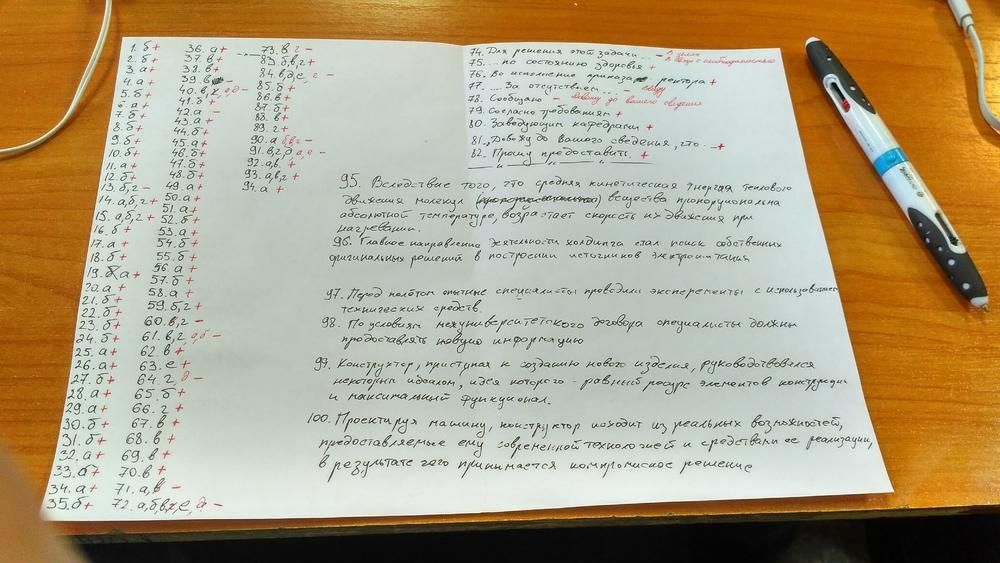 1. б +
2. б +
3. а +
4. а +
5. б +
6. а +
7. б +
8. б +
9. б +
10. б +
11. а +
12. б +
13. б, г -
14. а, б, г +
15. а, б, г +
16. б +
17. а +
18. б +
19. а +
20. а +
21. б +
22. б +
23. б +
24. б +
25. а +
26. а +
27. б +
28. а +
29. а +
30. б +
31. б +
32. а +
33. б +
34. а +
35. б +
36. а +
37. в +
38. в +
39. в -
40. в,
41. б +
42. а -
43. а +
44. б +
45. а +
46. б +
47. б +
48. б +
49. а +
50. а +
51. а +
52. б +
53. а +
54. б +
55. б +
56. а +
57. б +
58. а +
59. б, г +
60. в, г -
61. в, г, а, б -
62. в +
63. е +
64. г, -
65. б +
66. г +
67. в +
68. в +
69. в +
70. в +
71. а, в -
72. а, б, в, е, д -
73. в, г -
83. б, в, г +
84. в, д, е, г -
85. б +
86. в +
87. б +
88. в +
89. г +
90. а б, в, г -
91. в, г, д а, е -
92. а, в +
93. а, в, г +
94. а +
74. Для решения этой задачи ... - в целях
75. ... по состоянию здоровья + в связи с необходимостью
76. Во исполнение приказа ректора +
77. ... За отсутствием ... - ввиду
78. Сообщаю - Довожу до вашего сведения
79. Согласно требованиям +
80. Заведующим кафедрами +
81. „Довожу до Вашего сведения, что ... +
82. Прошу предоставить. +
95. Вследствие того, что средняя кинетическая энергия теплового
движения молекул вещества пропорциональна
абсолютной температуре, возрастает скорость их движения при
нагревании.
96. Главное направление деятельности холдинга стал поиск собственных
оригинальных решений в построении источников электропитания
97. Перед полётом опытные специалисты проводили эксперименты с использованием
технических средств.
98. По условиям межуниверситетского договора специалисты должны
предоставлять новую информацию
99. Конструктор, приступая к созданию нового изделия, руководствовался
некоторым идеалом, идея которого - равный ресурс элементов конструкции
и максимальный функционал.
100. Проектируя машину, конструктор исходит из реальных возможностей,
предоставляемые ему современной технологией и средствами ее реализации,
в результате чего принимается компромисное решение